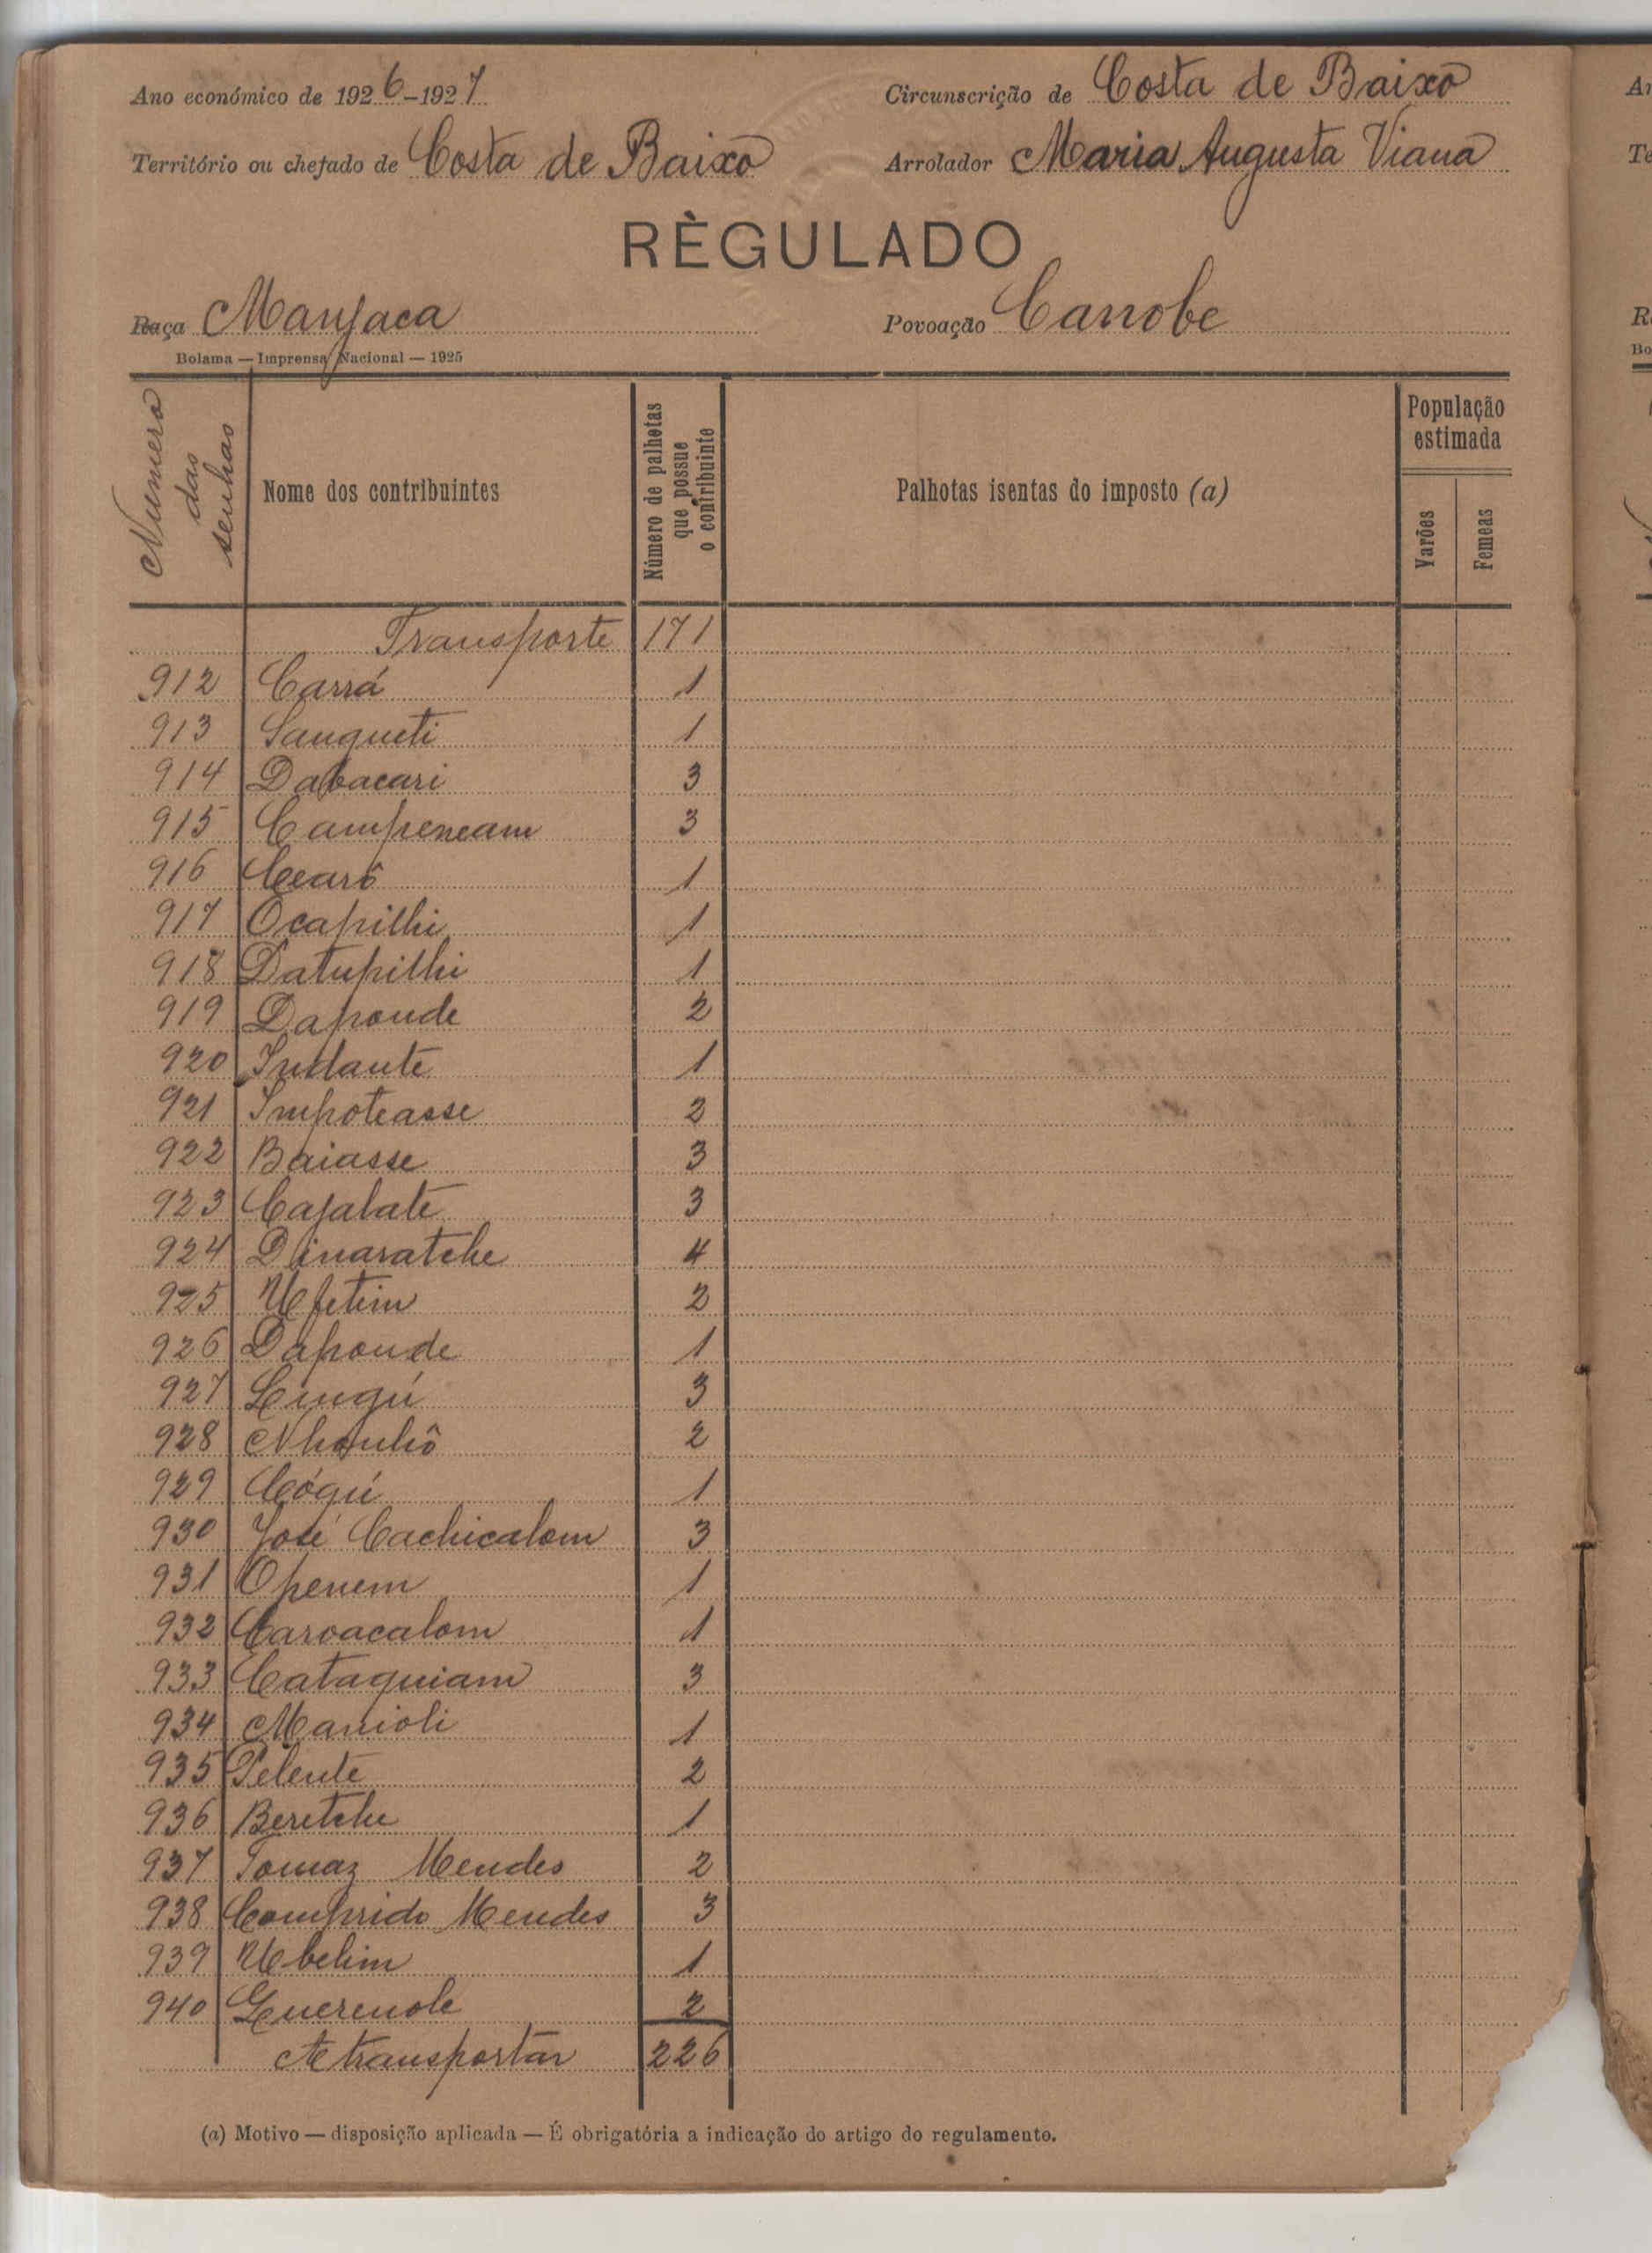 Ano económico de 1926-1927 Circunscrição de Costa de Baixo
Território ou chefado de Costa de Baixo Arrolador Maria Augusta Viana
RÈGULADO
Raça Manjaca Povoação Canobe
Bolama — Imprensa Nacional — 1925
Numero das senhas
Nome dos contribuintes
Número de palhotas que possue o contribuinte
Palhotas isentas do imposto (a)
População estimada
Varões
Femeas
Transporte 171
912 Carrá 1
913 Sangueti 1
914 Dabacari 3
915 Campeneam 3
916 Cearô 1
917 Ocapilhi 1
918 Datupilhi 1
919 Daponde 2
920 Indante 1
921 Impoteasse 2
922 Baiasse 3
923 Cajalate 3
924 Dinaratche 4
925 Ufetim 2
926 Daponde 1
927 Lingú 3
928 Nhonhô 2
929 Cógú 1
930 José Cachicalom 3
931 Openem 1
932 Caroacalom 1
933 Cataquiam 3
934 Manioli 1
935 Pelente 2
936 Beretche 1
937 Tomaz Mendes 2
938 Comprido Mendes 3
939 Ubelim 1
940 Guerenole 2
A transportar 226
(a) Motivo — disposição aplicada — É obrigatória a indicação do artigo do regulamento.